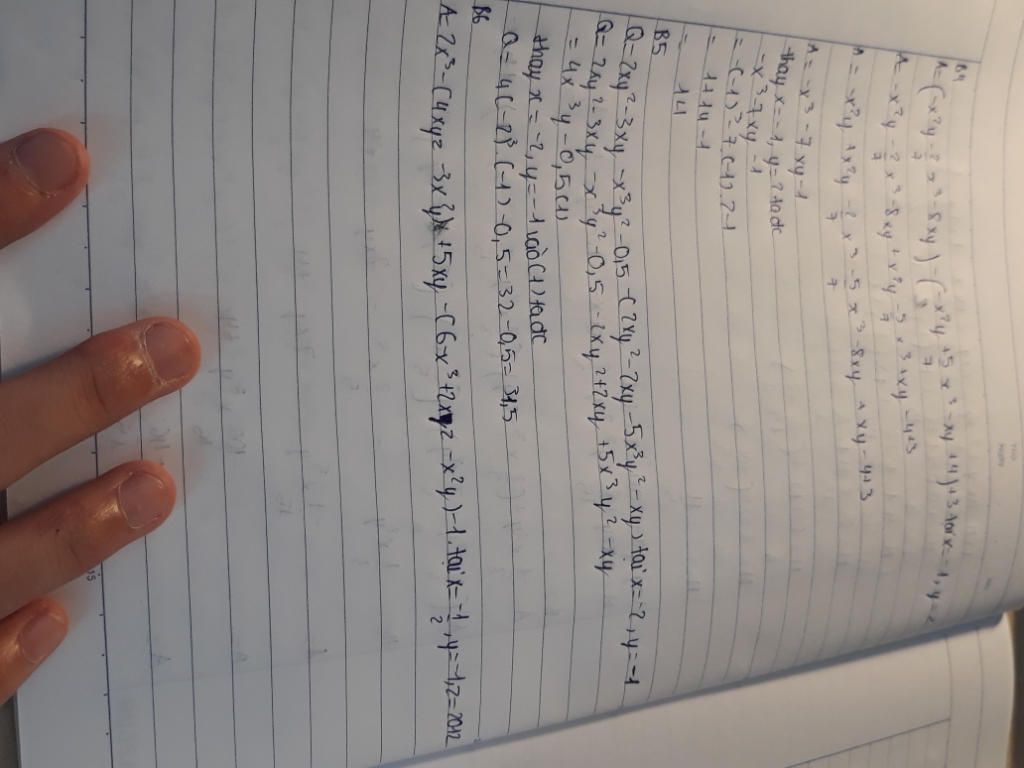 B4
A = (-x²y - 2/7 x³ - 8xy) - (-x²y + 5/7 x³ - xy + 4) + 3 tại x = -1, y = 2
A = -x²y - 2/7 x³ - 8xy + x²y - 5/7 x³ + xy - 4 + 3
A = -x²y + x²y - 2/7 x³ - 5/7 x³ - 8xy + xy - 4 + 3
A = -x³ - 7xy - 1
thay x = -1, y = 2 ta dc
-x³ - 7xy - 1
= -(-1)³ - 7.(-1).2 - 1
= 1 + 14 - 1
= 14
B5
Q = 2xy² - 3xy - x³y² - 0,5 - (2xy² - 2xy - 5x³y² - xy) tại x = -2, y = -1
Q = 2xy² - 3xy - x³y² - 0,5 - 2xy² + 2xy + 5x³y² - xy
= 4x³y - 0,5 (1)
thay x = -2, y = -1 vào (1) ta dc
Q = 4(-2)³.(-1) - 0,5 = 32 - 0,5 = 31,5
B6
A = 2x³ - (4xyz - 3x²y) + 5xy - (6x³ + 2xyz - x²y) - 1 tại x = -1/2, y = -1, z = 2012